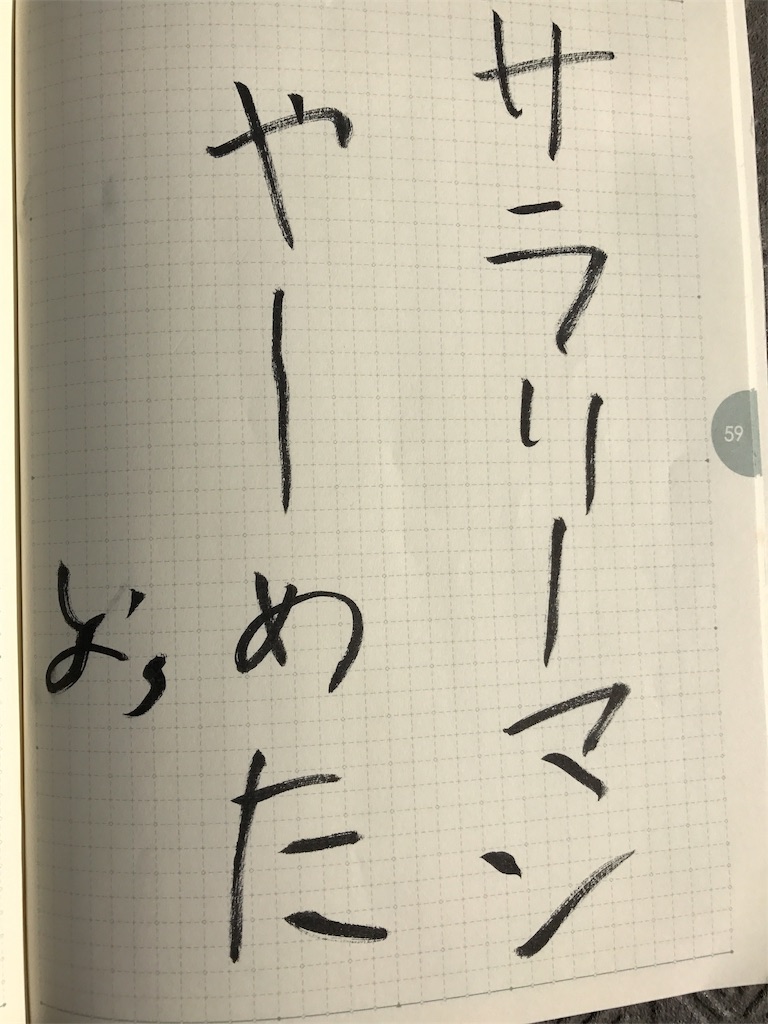 サラリーマン
やーめた
59